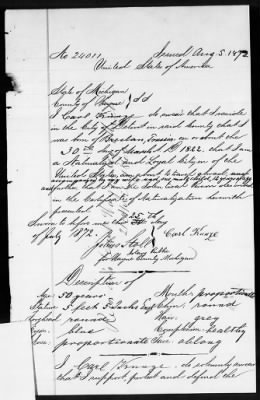 No 24011 Issued Aug 5 1872
United States of America
State of Michigan
County of Wayne } SS
I Carl Kruge do swear that I reside
in the City of Detroit in said county that I
was born of Breslau, Prussia on or about the
30th day of March 1822, that I am
a Naturalized and Loyal Citizen of the
United States, and about to travel abroad
and further that I am the
in the Certificate of Naturalization herewith
presented
Sworn to before me this 25th day
of July 1872. Carl Kruge
John
Notary Public
for Wayne County, Michigan
Description of
Age: 50 years Mouth, proportionate
Stature 5 feet 5 inches Eng Chin, round
Forehead round Hair, grey
Eyes, blue Complexion healthy
Nose, proportionate Face, oblong
I Carl Kruge do solemnly swear
that I support, protect and defend the